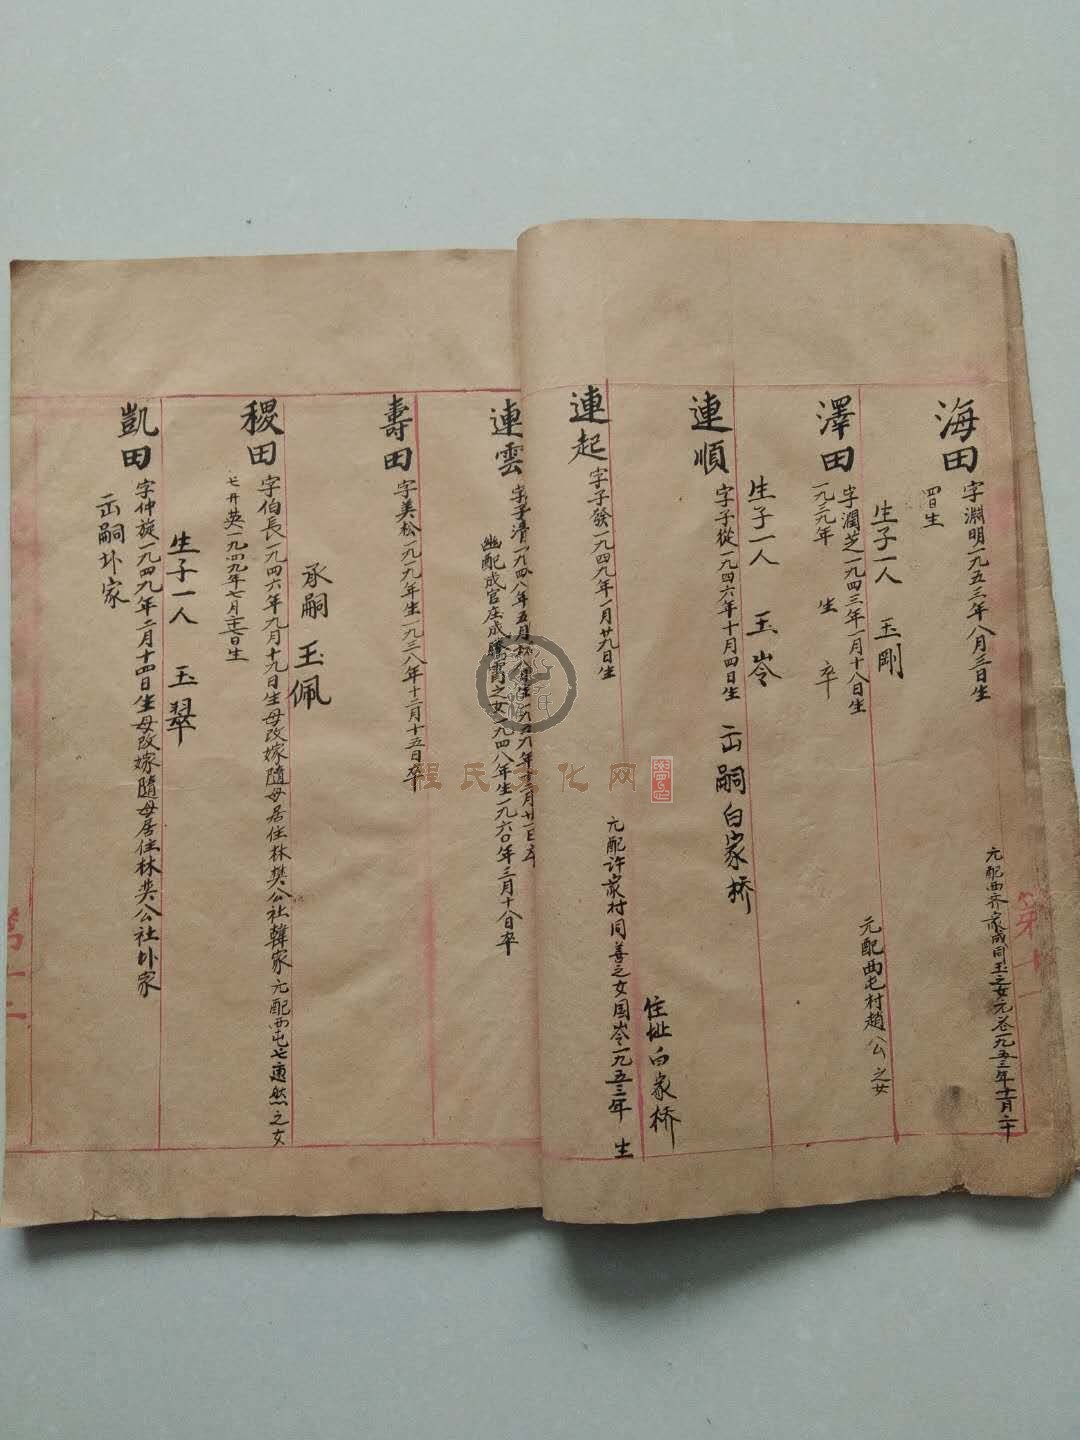 海田
字淵明一九五三年八月三日生
元配西齐家成同玉之女元
一九五三年十一月二十
四日生
生子一人 玉剛
澤田
字潤芝一九四三年一月十八日生
元配西屯村趙公之女
一九三九年 生 卒
生子一人 玉岺
連順
字子從一九四六年十月四日生
出嗣白家桥
住址白家桥
連起
字子發一九四九年一月廿九日生
元配许家村同善之女国岺一九五三年 生
連雲
字子清一九四八年五月
日卒
幽配成官庄成騰霄之女一九四八年生一九六〇年三月十八日卒
壽田
字美松一九一九年生一九三八年十二月十五日卒
承嗣 玉佩
稷田
字伯長一九四六年九月十九日生母改嫁隨母居住林樊公社韓家
元配西屯
之女
英一九四九年七月
日生
生子一人 玉翠
凱田
字仲旋一九四九年二月十四日生母改嫁隨母居住林樊公社卟家
出嗣卟家
程氏文化网